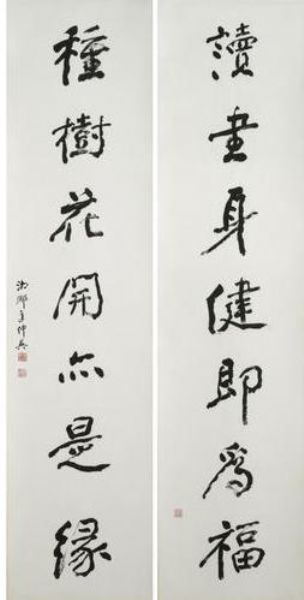 讀書身健即為福
種樹花開亦是緣